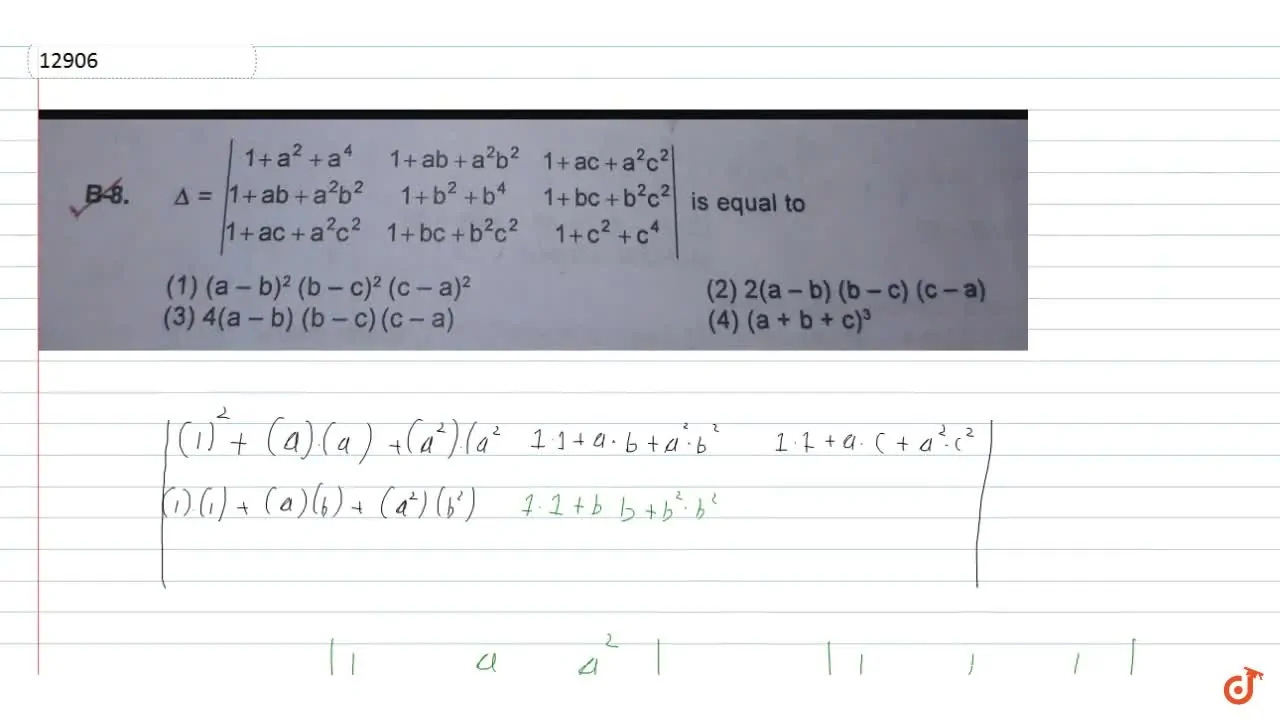 12906
B-8. Δ = | 1+a²+a⁴ 1+ab+a²b² 1+ac+a²c² |
| 1+ab+a²b² 1+b²+b⁴ 1+bc+b²c² | is equal to
| 1+ac+a²c² 1+bc+b²c² 1+c²+c⁴ |
(1) (a – b)² (b – c)² (c – a)² (2) 2(a – b) (b – c) (c – a)
(3) 4(a – b) (b – c) (c – a) (4) (a + b + c)³
| (1)² + (a).(a) + (a²).(a² 1.1+a.b+a².b² 1.1+a.c+a².c² |
| (1).(1) + (a)(b) + (a²)(b²) 1.1+b b+b².b² |
| 1 a a² | | 1 1 1 |